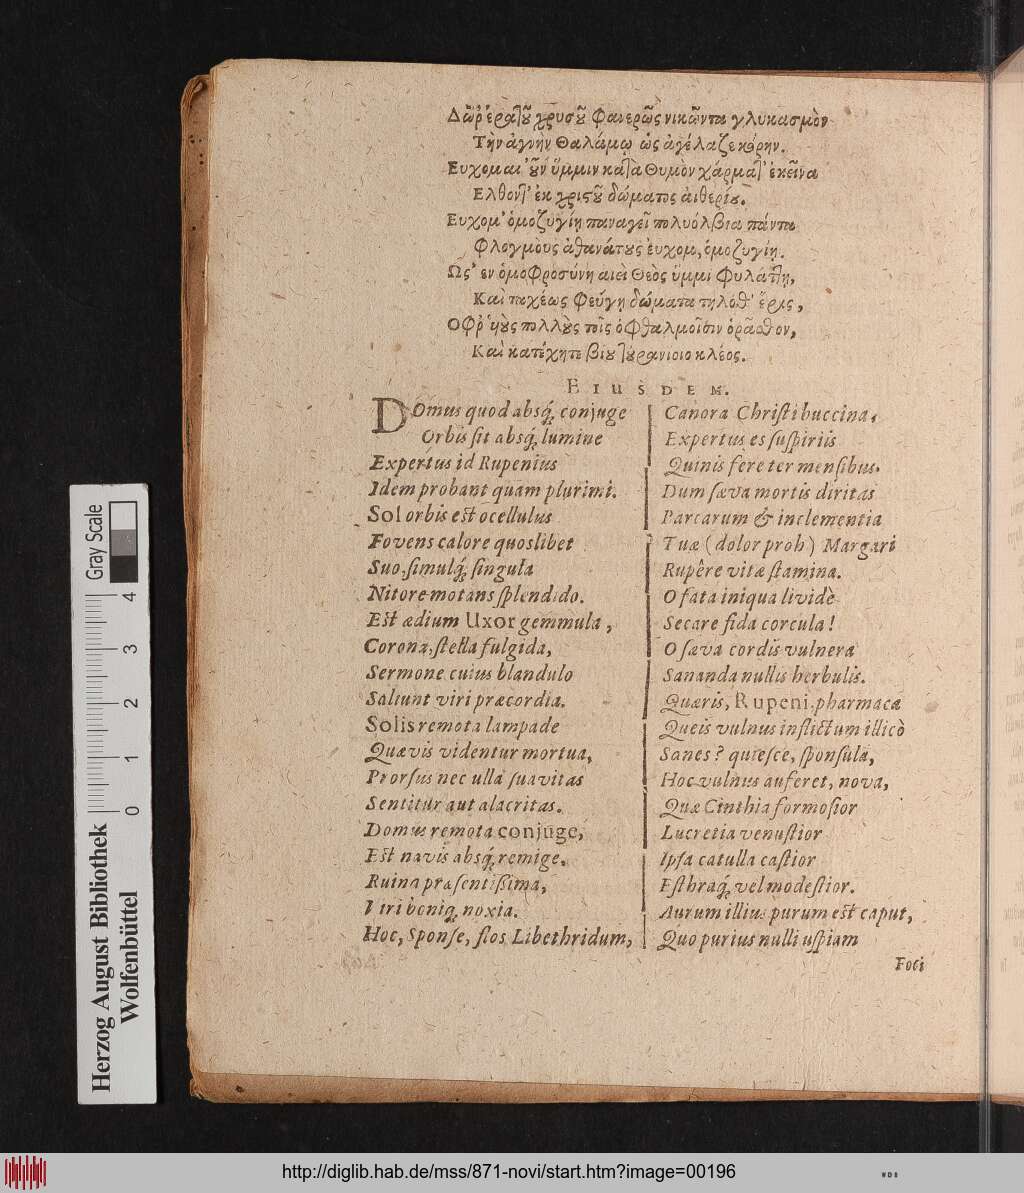 Δῶρ' ἐρατȣ͂ χρυσȣ͂ φανερῶς νικῶντα γλυκασμὸν
Τὴν ἁγνὴν θαλάμῳ ὡς ἀγέλαζε κόρην.
Ευχομαι' ȣ͂ν ὕμμιν κατὰ θυμὸν χάρματ' ἐκεῖνα
Ελθοντ' ἐκ χριςȣ͂ δώματος ἀιθερίȣ.
Ευχομ' ὁμοζυγίῃ παναγεῖ πολυόλβια πάντα
Φλογμοὺς ἀθανάτȣς ἐυχομ, ὁμοζυγίῃ.
Ως' εν ὁμοφροσύνῃ αιεὶ Θεὸς ὕμμι φυλάττῃ,
Καὶ ταχέως φεύγῃ δώματα τηλόθ' ἔρις,
Οφρ' ὑȣ͂ς πολλȣ̀ς τοῖς ὀφθαλμοῖσιν ὁρᾶσθον,
Καὶ κατέχητε βίȣ τȣρανίοιο κλέος.
EIUSDEM.
DOmus quod absq́; conjuge
Orbis sit absq́; lumine
Expertus id Rupenius
Idem probant quàm plurimi.
Sol orbis est ocellulus
Fovens calore quoslibet
Suo, simulq́; singula
Nitore motans splendido.
Est ædium Uxor gemmula,
Corona, stella fulgida,
Sermone cuius blandulo
Saliunt viri præcordia.
Solis remota lampade
Quævis videntur mortua,
Prorsus nec ulla suavitas
Sentitur aut alacritas.
Domus remota conjuge,
Est navis absq́; remige,
Ruina præsentißima,
Viri boniq́; noxia.
Hoc, Sponse, flos Libethridum,
Canora Christi buccina,
Expertus es suspiriis
Quinis fere ter mensibus.
Dum sæva mortis diritas
Parcarum & inclementia
Tuæ (dolor proh) Margari
Rupêre vitæ stamina.
O fata iniqua lividè
Secare fida corcula!
O sæva cordis vulnera
Sananda nullis herbulis.
Quæris, Rupeni, pharmaca
Queis vulnus inflictum illicò
Sanes? quiesce, sponsula,
Hoc vulnus auferet, nova,
Quæ Cinthia formosior
Lucretia venustior
Ipsa catulla castior
Esthraq́; vel modestior.
Aurum illius purum est caput,
Quo purius nulli uspiam
Foci
Gray Scale
0 1 2 3 4
Herzog August Bibliothek
Wolfenbüttel
http://diglib.hab.de/mss/871-novi/start.htm?image=00196
WDB